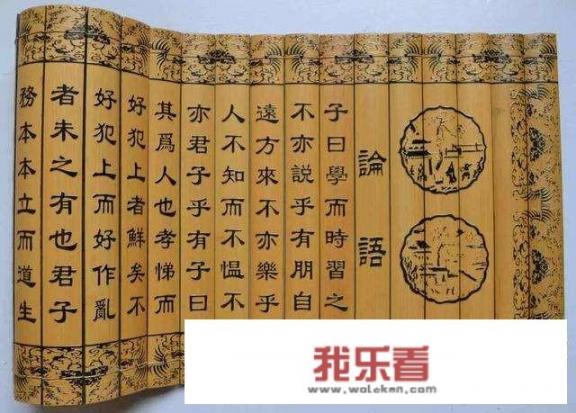 論語
子曰學而時習之
不亦説乎有朋自
遠方來不亦樂乎
人不知而不愠不
亦君子乎有子曰
其爲人也孝悌而
好犯上者鮮矣不
好犯上而好作亂
者未之有也君子
務本本立而道生
我乐看
www.woleken.com